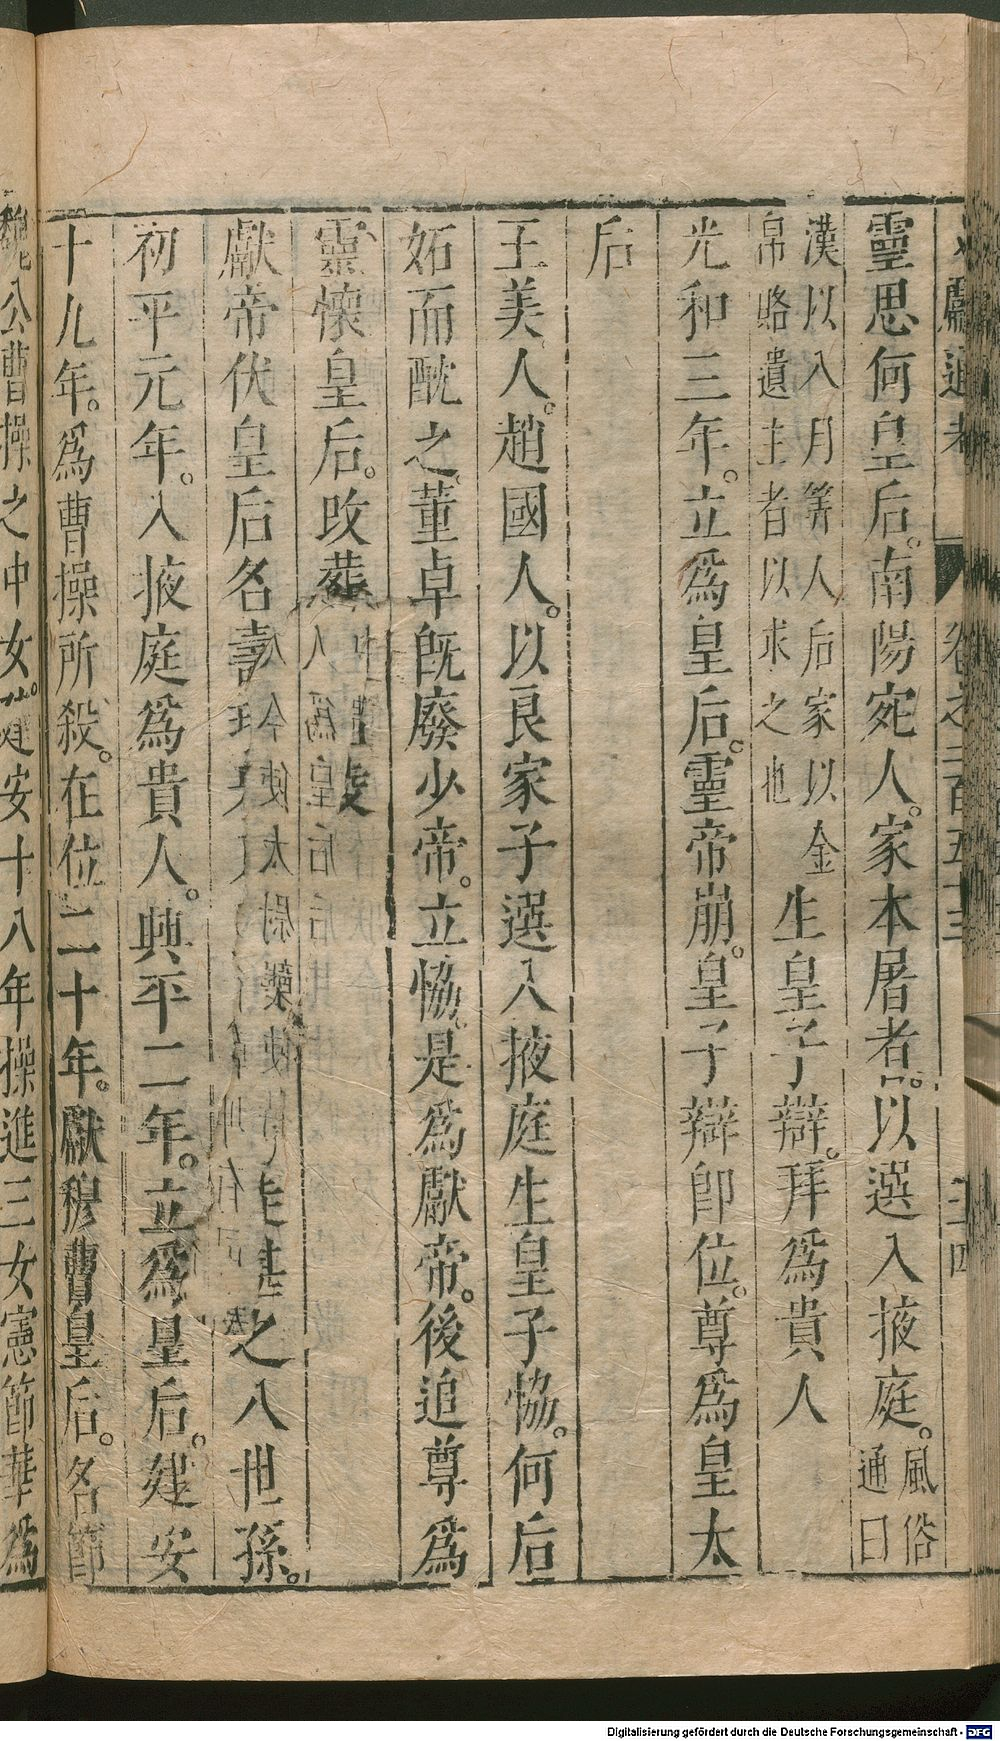 靈思何皇后。南陽宛人。家本屠者。以選入掖庭。風俗通曰
漢以八月筭人后家以金帛賂遺主者以求之也生皇子辯。拜爲貴人
光和三年。立爲皇后。靈帝崩。皇子辯卽位。尊爲皇太
后
王美人。趙國人。以良家子選入掖庭生皇子恊。何后
妬而酖之。董卓既廢少帝。立恊。是爲獻帝。後追尊爲
靈懷皇后。改葬
獻帝伏皇后名壽 之八世孫。
初平元年。入掖庭爲貴人。興平二年。立爲皇后。建安
十九年。爲曹操所殺。在位二十年。獻穆曹皇后。名節
魏公曹操之中女。建安十八年操進三女憲節華爲
Digitalisierung gefördert durch die Deutsche Forschungsgemeinschaft - DFG